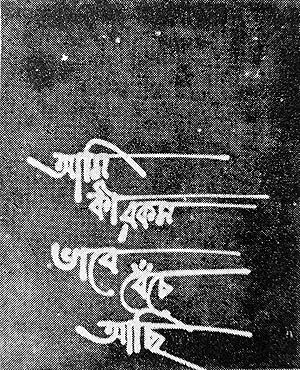 আমি
কী রকম
ভাবে
বেঁচে
আছি